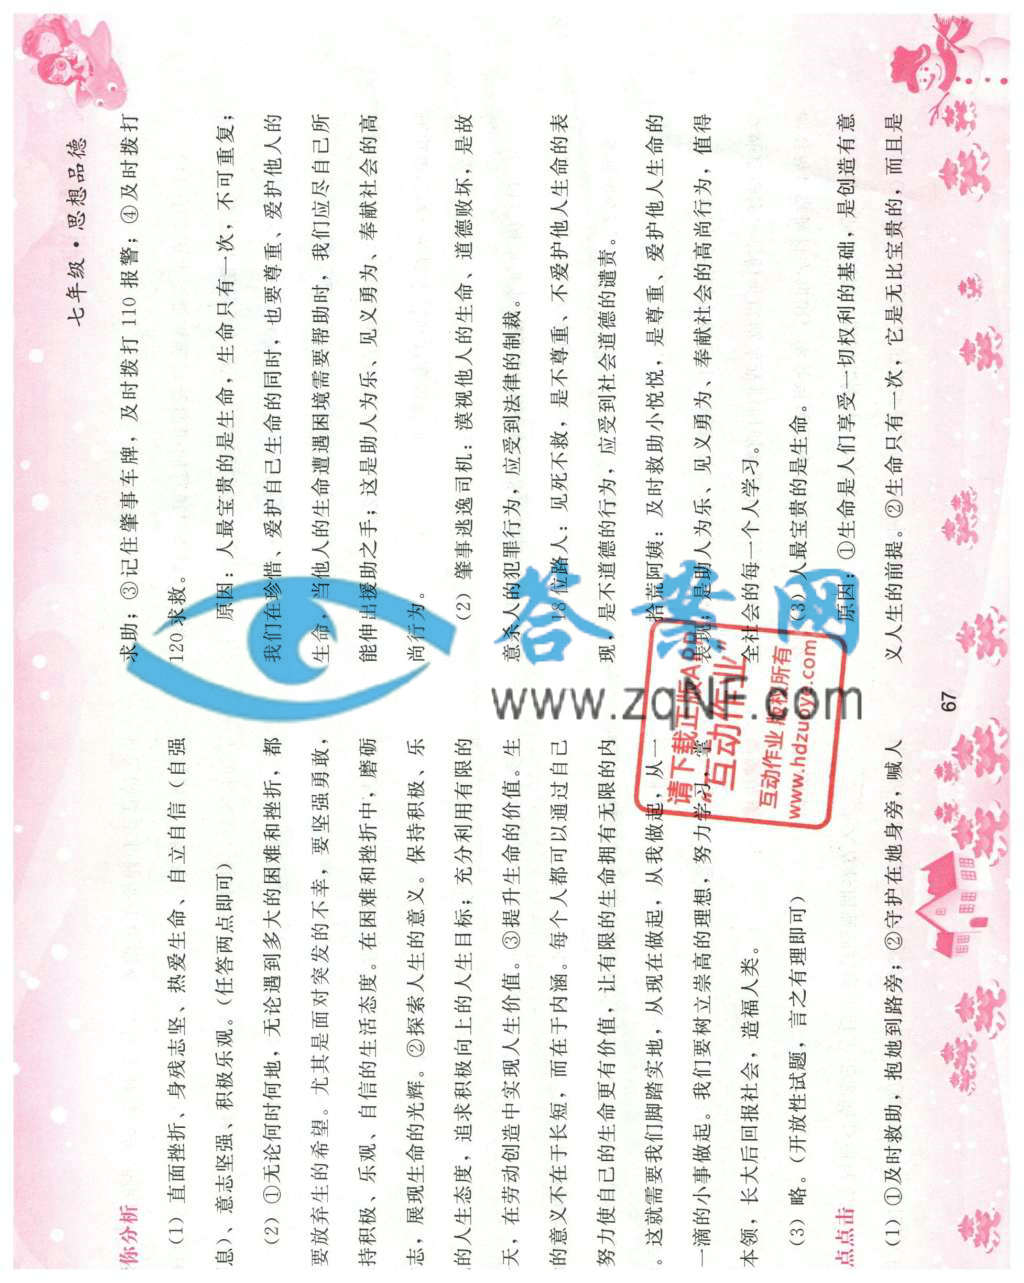 七年级·思想品德
你分析
(1) 直面挫折、身残志坚、热爱生命、自立自信（自强
息）、意志坚强、积极乐观。（任答两点即可）
(2) ①无论何时何地，无论遇到多大的困难和挫折，都
要放弃生的希望。尤其是面对突发的不幸，要坚强勇敢，
持积极、乐观、自信的生活态度。在困难和挫折中，磨砺
志，展现生命的光辉。②探索人生的意义。保持积极、乐
的人生态度，追求积极向上的人生目标；充分利用有限的
天，在劳动创造中实现人生价值。③提升生命的价值。生
的意义不在于长短，而在于内涵。每个人都可以通过自己
努力使自己的生命更有价值，让有限的生命拥有无限的内
。这就需要我们脚踏实地，从现在做起，从我做起，从一
一滴的小事做起。我们要树立崇高的理想，努力学习，掌
本领，长大后回报社会，造福人类。
(3) 略。（开放性试题，言之有理即可）
点点击
(1) ①及时救助，抱她到路旁；②守护在她身旁，喊人
求助；③记住肇事车牌，及时拨打 110 报警；④及时拨打
120 求救。
原因：人最宝贵的是生命，生命只有一次，不可重复；
我们在珍惜、爱护自己生命的同时，也要尊重、爱护他人的
生命，当他人的生命遭遇困境需要帮助时，我们应尽自己所
能伸出援助之手；这是助人为乐、见义勇为、奉献社会的高
尚行为。
(2) 肇事逃逸司机：漠视他人的生命、道德败坏，是故
意杀人的犯罪行为，应受到法律的制裁。
18 位路人：见死不救，是不尊重、不爱护他人生命的表
现，是不道德的行为，应受到社会道德的谴责。
拾荒阿姨：及时救助小悦悦，是尊重、爱护他人生命的
表现；是助人为乐、见义勇为、奉献社会的高尚行为，值得
全社会的每一个人学习。
(3) 人最宝贵的是生命。
原因：①生命是人们享受一切权利的基础，是创造有意
义人生的前提。②生命只有一次，它是无比宝贵的，而且是
67
答案网
www.zqnf.com
请下载正版APP
“互动作业”
互动作业 版权所有
www.hdzuoye.com